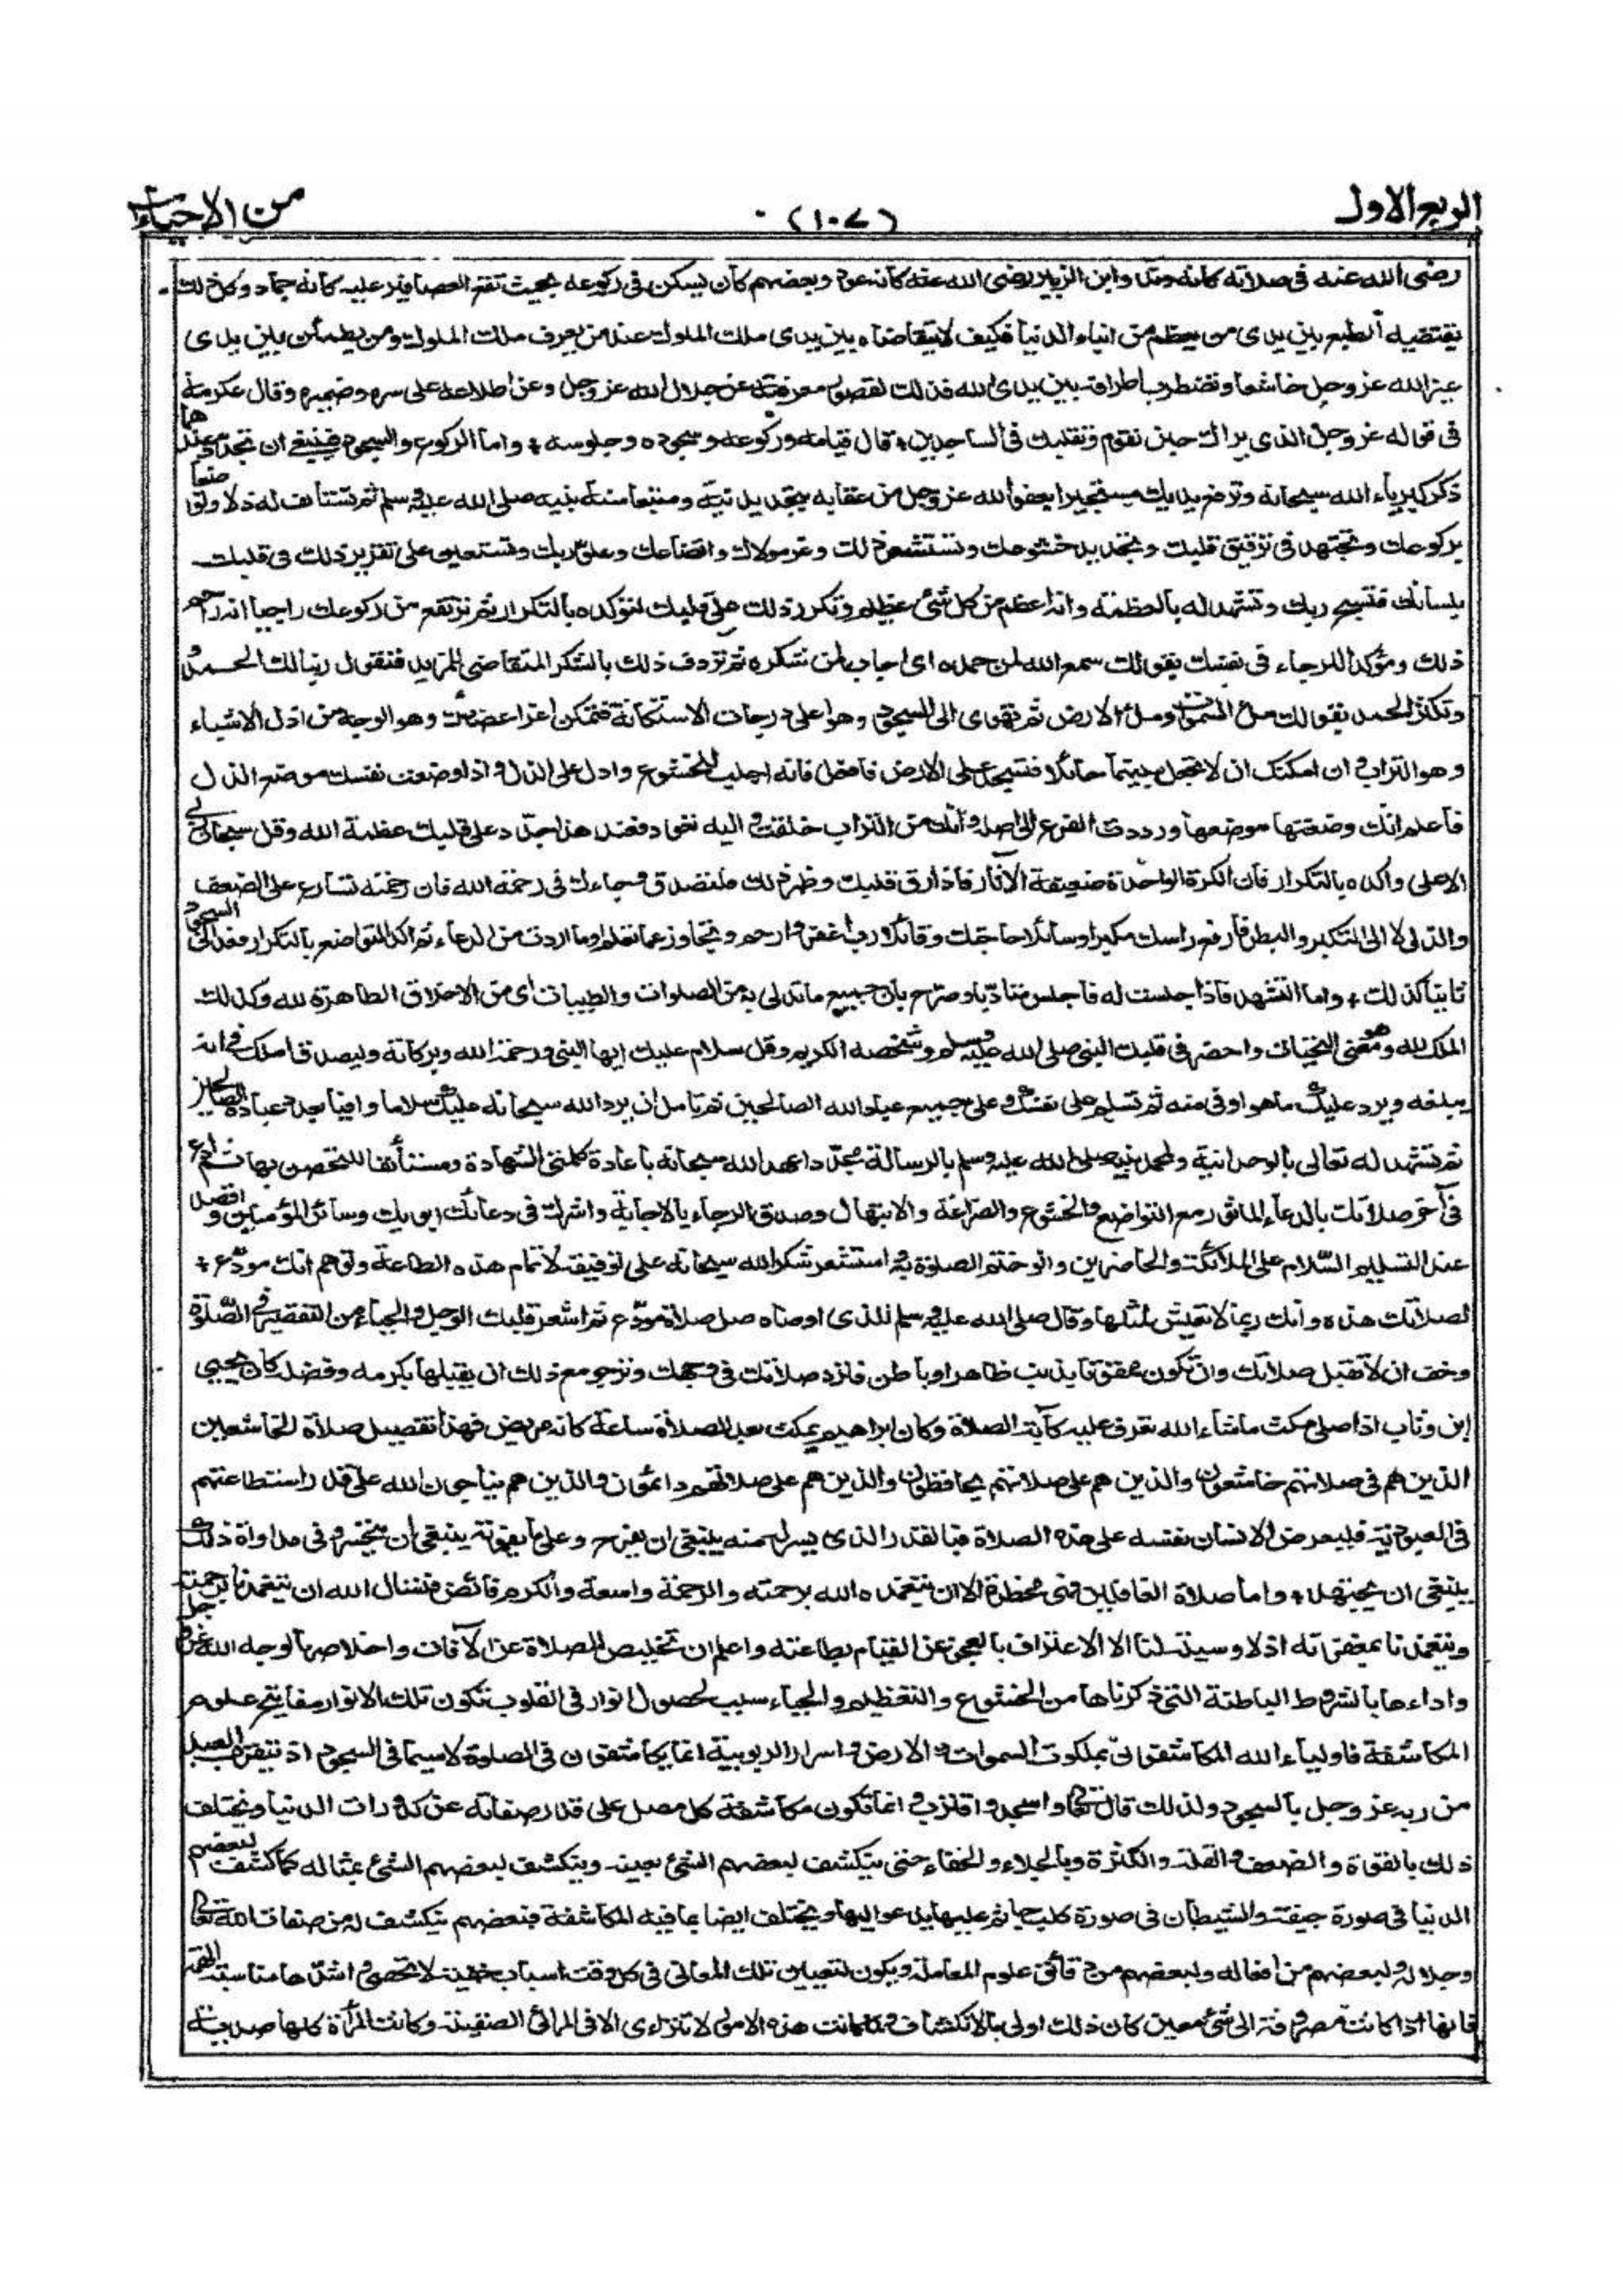 الربع الاول
(١٠٧)
من الاحياء
رضى الله عنه فى صلاته كانه وتد وابن الزبير رضى الله عنه كانه عود وبعضهم كان يسكن فى ركوعه بحيث تقع العصافير عليه كانه جماد وكل ذلك
يقتضيه الطبع بين يدى من يعظم من ابناء الدنيا فكيف لا يتقاضاه بين يدى ملك الملوك عند من يعرف ملك الملوك ومن يطمئن بين يدى
غير الله عز وجل خاشعا وتضطرب اطرافه بين يدى الله فذلك لقصور معرفته عن جلال الله عز وجل وعن اطلاعه على سره وضميره وقال عكرمة
فى قوله عز وجل الذى يراك حين تقوم وتقلبك فى الساجدين قال قيامه وركوعه وسجوده وجلوسه واما الركوع والسجود فينبغى ان تجدد عندهما
ذكر كبرياء الله سبحانه وترفع يديك مستجيرا بعفو الله عز وجل من عقابه بتجديد نية ومتبعا سنة نبيه صلى الله عليه وسلم ثم تستأنف له ذلا وتواضعا
بركوعك وتجتهد فى ترقيق قلبك وتجديد خشوعك وتستشعر ذلك وعز مولاك واتضاعك وعلو ربك وتستعين على تقرير ذلك فى قلبك
بلسانك فتسبح ربك وتشهد له بالعظمة وانه اعظم من كل شئ عظيم وتكرر ذلك على قلبك لتؤكده بالتكرار ثم ترتفع من ركوعك راجيا انه راحم
ذلك ومؤكدا للرجاء فى نفسك بقولك سمع الله لمن حمده اى اجاب لمن شكره ثم تردف ذلك بالشكر المتقاضى للمزيد فتقول ربنا لك الحمد
وتكثر الحمد بقولك ملء السموات وملء الارض ثم تهوى الى السجود وهو اعلى درجات الاستكانة فتمكن اعز اعضائك وهو الوجه من اذل الاشياء
وهو التراب وان امكنك ان لا تجعل بينهما حائلا فتسجد على الارض فافعل فانه اجلب للخشوع وادل على الذل واذا وضعت نفسك موضع الذل
فاعلم انك وضعتها موضعها ورددت الفرع الى اصله وانك من التراب خلقت واليه تعود فعند هذا جدد على قلبك عظمة الله وقل سبحان ربى
الاعلى واكده بالتكرار فان الكرة الواحدة ضعيفة الآثار فاذا رق قلبك وظهر ذلك فلتصدق رجاءك فى رحمة الله فان رحمته تتسارع على الضعف
والذل لا الى التكبر والبطر فارفع راسك مكبرا وسائلا حاجتك وقائلا رب اغفر وارحم وتجاوز عما تعلم او ما اردت من الدعاء ثم اكد التواضع بالتكرار فعد الى السجود
ثانيا كذلك واما التشهد فاذا جلست له فاجلس متادبا وصرح بان جميع ما تدلى به من الصلوات والطيبات اى من الاخلاق الطاهرة لله وكذلك
الملك لله وهو معنى التحيات واحضر فى قلبك النبى صلى الله عليه وسلم وشخصه الكريم وقل سلام عليك ايها النبى ورحمة الله وبركاته وليصدق املك فى انه
يبلغه ويرد عليك ما هو اوفى منه ثم تسلم على نفسك وعلى جميع عباد الله الصالحين ثم تامل ان يرد الله سبحانه عليك سلاما وافيا بعدد عباده الصالحين
ثم تشهد له تعالى بالوحدانية ولمحمد نبيه صلى الله عليه وسلم بالرسالة مجددا عهد الله سبحانه باعادة كلمتى الشهادة ومستأنفا للتحصن بها ثم ادع
فى آخر صلاتك بالدعاء الماثور مع التواضع والخشوع والضراعة والابتهال وصدق الرجاء بالاجابة واشرك فى دعائك ابويك وسائر المؤمنين واقصد
عند التسليم السلام على الملائكة والحاضرين وانو ختم الصلوة به واستشعر شكر الله سبحانه على توفيقه لاتمام هذه الطاعة وتوهم انك مودع
لصلاتك هذه وانك ربما لا تعيش لمثلها وقال صلى الله عليه وسلم للذى اوصاه صل صلاة مودع ثم اشعر قلبك الوجل والحياء من التقصير فى الصلوة
وخف ان لا تقبل صلاتك وان تكون ممقوتا بذنب ظاهر او باطن فترد صلاتك فى وجهك وترجو مع ذلك ان يقبلها بكرمه وفضله كان يحيى
ابن وثاب اذا صلى مكث ما شاء الله تعرف عليه كآبة الصلاة وكان ابراهيم يمكث بعد الصلاة ساعة كانه مريض فهذا تفصيل صلاة الخاشعين
الذين هم فى صلاتهم خاشعون والذين هم على صلاتهم يحافظون والذين هم على صلاتهم دائمون والذين هم يناجون الله على قدر استطاعتهم
فى العبودية فليعرض الانسان نفسه على هذه الصلاة فبالقدر الذى يسر له منه ينبغى ان يفرح وعلى ما يفوته ينبغى ان يتحسر وفى مداواة ذلك
ينبغى ان يجتهد واما صلاة الغافلين فهى مخطرة الا ان يتغمده الله برحمته والرحمة واسعة والكرم فائض فنسال الله ان يتغمدنا برحمته
ويتغمدنا بمغفرته اذ لا وسيلة لنا الا الاعتراف بالعجز عن القيام بطاعته واعلم ان تخليص الصلاة عن الآفات واخلاصها لوجه الله عز وجل
واداءها بالشروط الباطنة التى ذكرناها من الخشوع والتعظيم والحياء سبب لحصول انوار فى القلوب تكون تلك الانوار مفاتيح علوم
المكاشفة فاولياء الله المكاشفون بملكوت السموات والارض واسرار الربوبية انما يكاشفون فى الصلوة لا سيما فى السجود اذ يتقرب العبد
من ربه عز وجل بالسجود ولذلك قال تعالى واسجد واقترب وانما تكون مكاشفة كل مصل على قدر صفائه عن كدورات الدنيا ويختلف
ذلك بالقوة والضعف والقلة والكثرة وبالجلاء والخفاء حتى ينكشف لبعضهم الشئ بعينه وينكشف لبعضهم الشئ بمثاله كما كشف لبعضهم
الدنيا فى صورة جيفة والشيطان فى صورة كلب جاثم عليها يدعو اليها ويختلف ايضا بما فيه المكاشفة فبعضهم ينكشف له من صفات الله تعالى
وجلاله ولبعضهم من افعاله ولبعضهم من دقائق علوم المعاملة ويكون لتعيين تلك المعانى فى كل وقت اسباب خفية لا تحصى واشدها مناسبة الهمة
فانها اذا كانت مصروفة الى شئ معين كان ذلك اولى بالانكشاف ولما كانت هذه الامور لا تتراءى الا فى المرائى الصقيلة وكانت المرآة كلها صدئة